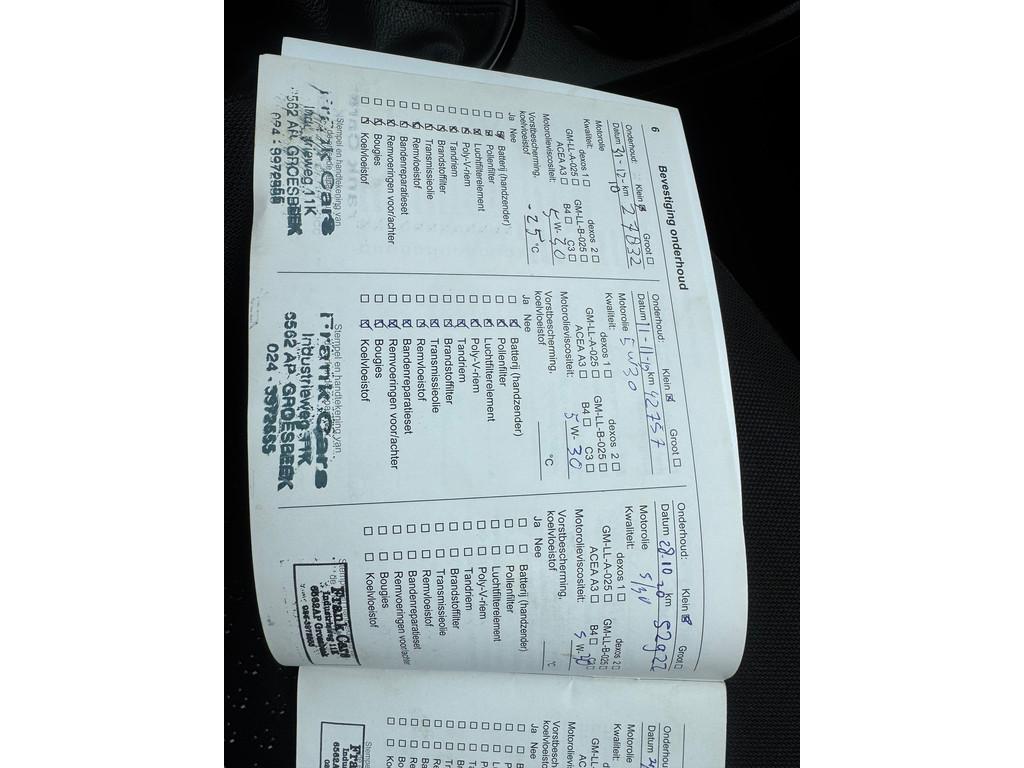 6 Bevestiging onderhoud
Onderhoud: Klein ☒ Groot ☐
Datum 31-12- km 27832
Motorolie
Kwaliteit: dexos 1 ☐ dexos 2 ☐
GM-LL-A-025 ☐ GM-LL-B-025 ☐
ACEA A3 ☐ B4 ☐ C3 ☐
Motorolieviscositeit: 5 W- 30
Vorstbescherming,
koelvloeistof - 25 °C
Ja Nee
☐ ☒ Batterij (handzender)
☐ ☒ Pollenfilter
☐ ☒ Luchtfilterelement
☐ ☒ Poly-V-riem
☐ ☒ Tandriem
☐ ☒ Brandstoffilter
☐ ☒ Transmissieolie
☐ ☒ Remvloeistof
☐ ☒ Bandenreparatieset
☐ ☒ Remvoeringen voor/achter
☐ ☒ Bougies
☐ ☒ Koelvloeistof
Stempel en handtekening van
Frank Cars
Industrieweg 11K
6562 AP GROESBEEK
024 - 3972855
Onderhoud: Klein ☒ Groot ☐
Datum 11-11- km 42757
Motorolie 5W30
Kwaliteit: dexos 1 ☐ dexos 2 ☐
GM-LL-A-025 ☐ GM-LL-B-025 ☐
ACEA A3 ☐ B4 ☐ C3 ☐
Motorolieviscositeit: 5 W- 30
Vorstbescherming,
koelvloeistof °C
Ja Nee
☐ ☒ Batterij (handzender)
☐ ☒ Pollenfilter
☐ ☒ Luchtfilterelement
☐ ☒ Poly-V-riem
☐ ☒ Tandriem
☐ ☒ Brandstoffilter
☐ ☒ Transmissieolie
☐ ☒ Remvloeistof
☐ ☒ Bandenreparatieset
☐ ☒ Remvoeringen voor/achter
☐ ☒ Bougies
☐ ☒ Koelvloeistof
Stempel en handtekening van
Frank Cars
Industrieweg 11K
6562 AP GROESBEEK
024 - 3972855
Onderhoud: Klein ☒ Groot ☐
Datum 28.10.20 km 52922
Motorolie 5/30
Kwaliteit: dexos 1 ☐ dexos 2 ☐
GM-LL-A-025 ☐ GM-LL-B-025 ☐
ACEA A3 ☐ B4 ☐ C3 ☐
Motorolieviscositeit: 5 W- 30
Vorstbescherming,
koelvloeistof °C
Ja Nee
☐ ☐ Batterij (handzender)
☐ ☐ Pollenfilter
☐ ☐ Luchtfilterelement
☐ ☐ Poly-V-riem
☐ ☐ Tandriem
☐ ☐ Brandstoffilter
☐ ☐ Transmissieolie
☐ ☐ Remvloeistof
☐ ☐ Bandenreparatieset
☐ ☐ Remvoeringen voor/achter
☐ ☐ Bougies
☐ ☐ Koelvloeistof
Frank Cars
Industrieweg 11F
6562AP Groesbeek
Onderhou
Datum
Motorolie
Kwaliteit:
GM-LL
ACE
Motorol
Vorstbe
koelvloe
Ja Nee
☐ ☐ B
☐ ☐ Po
☐ ☐ Lu
☐ ☐ Po
☐ ☐ Ta
☐ ☐ Br
☐ ☐ Tra
☐ ☐ Rem
☐ ☐ Ban
☐ ☐ Rem
☐ ☐ Bo
☐ ☐ Ko
Stem
Fra
Indu
6562A